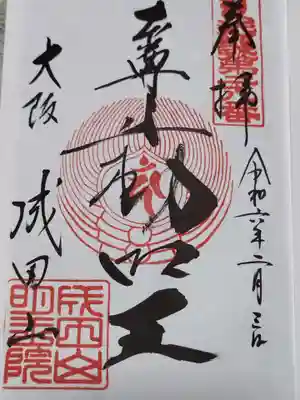 奉拝
令和六年二月三日
動明王
大阪
成田山
成田山
明王院